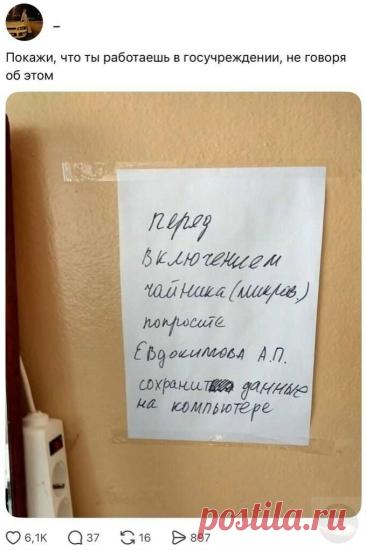 –
Покажи, что ты работаешь в госучреждении, не говоря
об этом
перед
включением
чайника (микров.)
попросите
Евдокимова А.П.
сохранить данные
на компьютере
6,1K 37 16 897
postila.ru